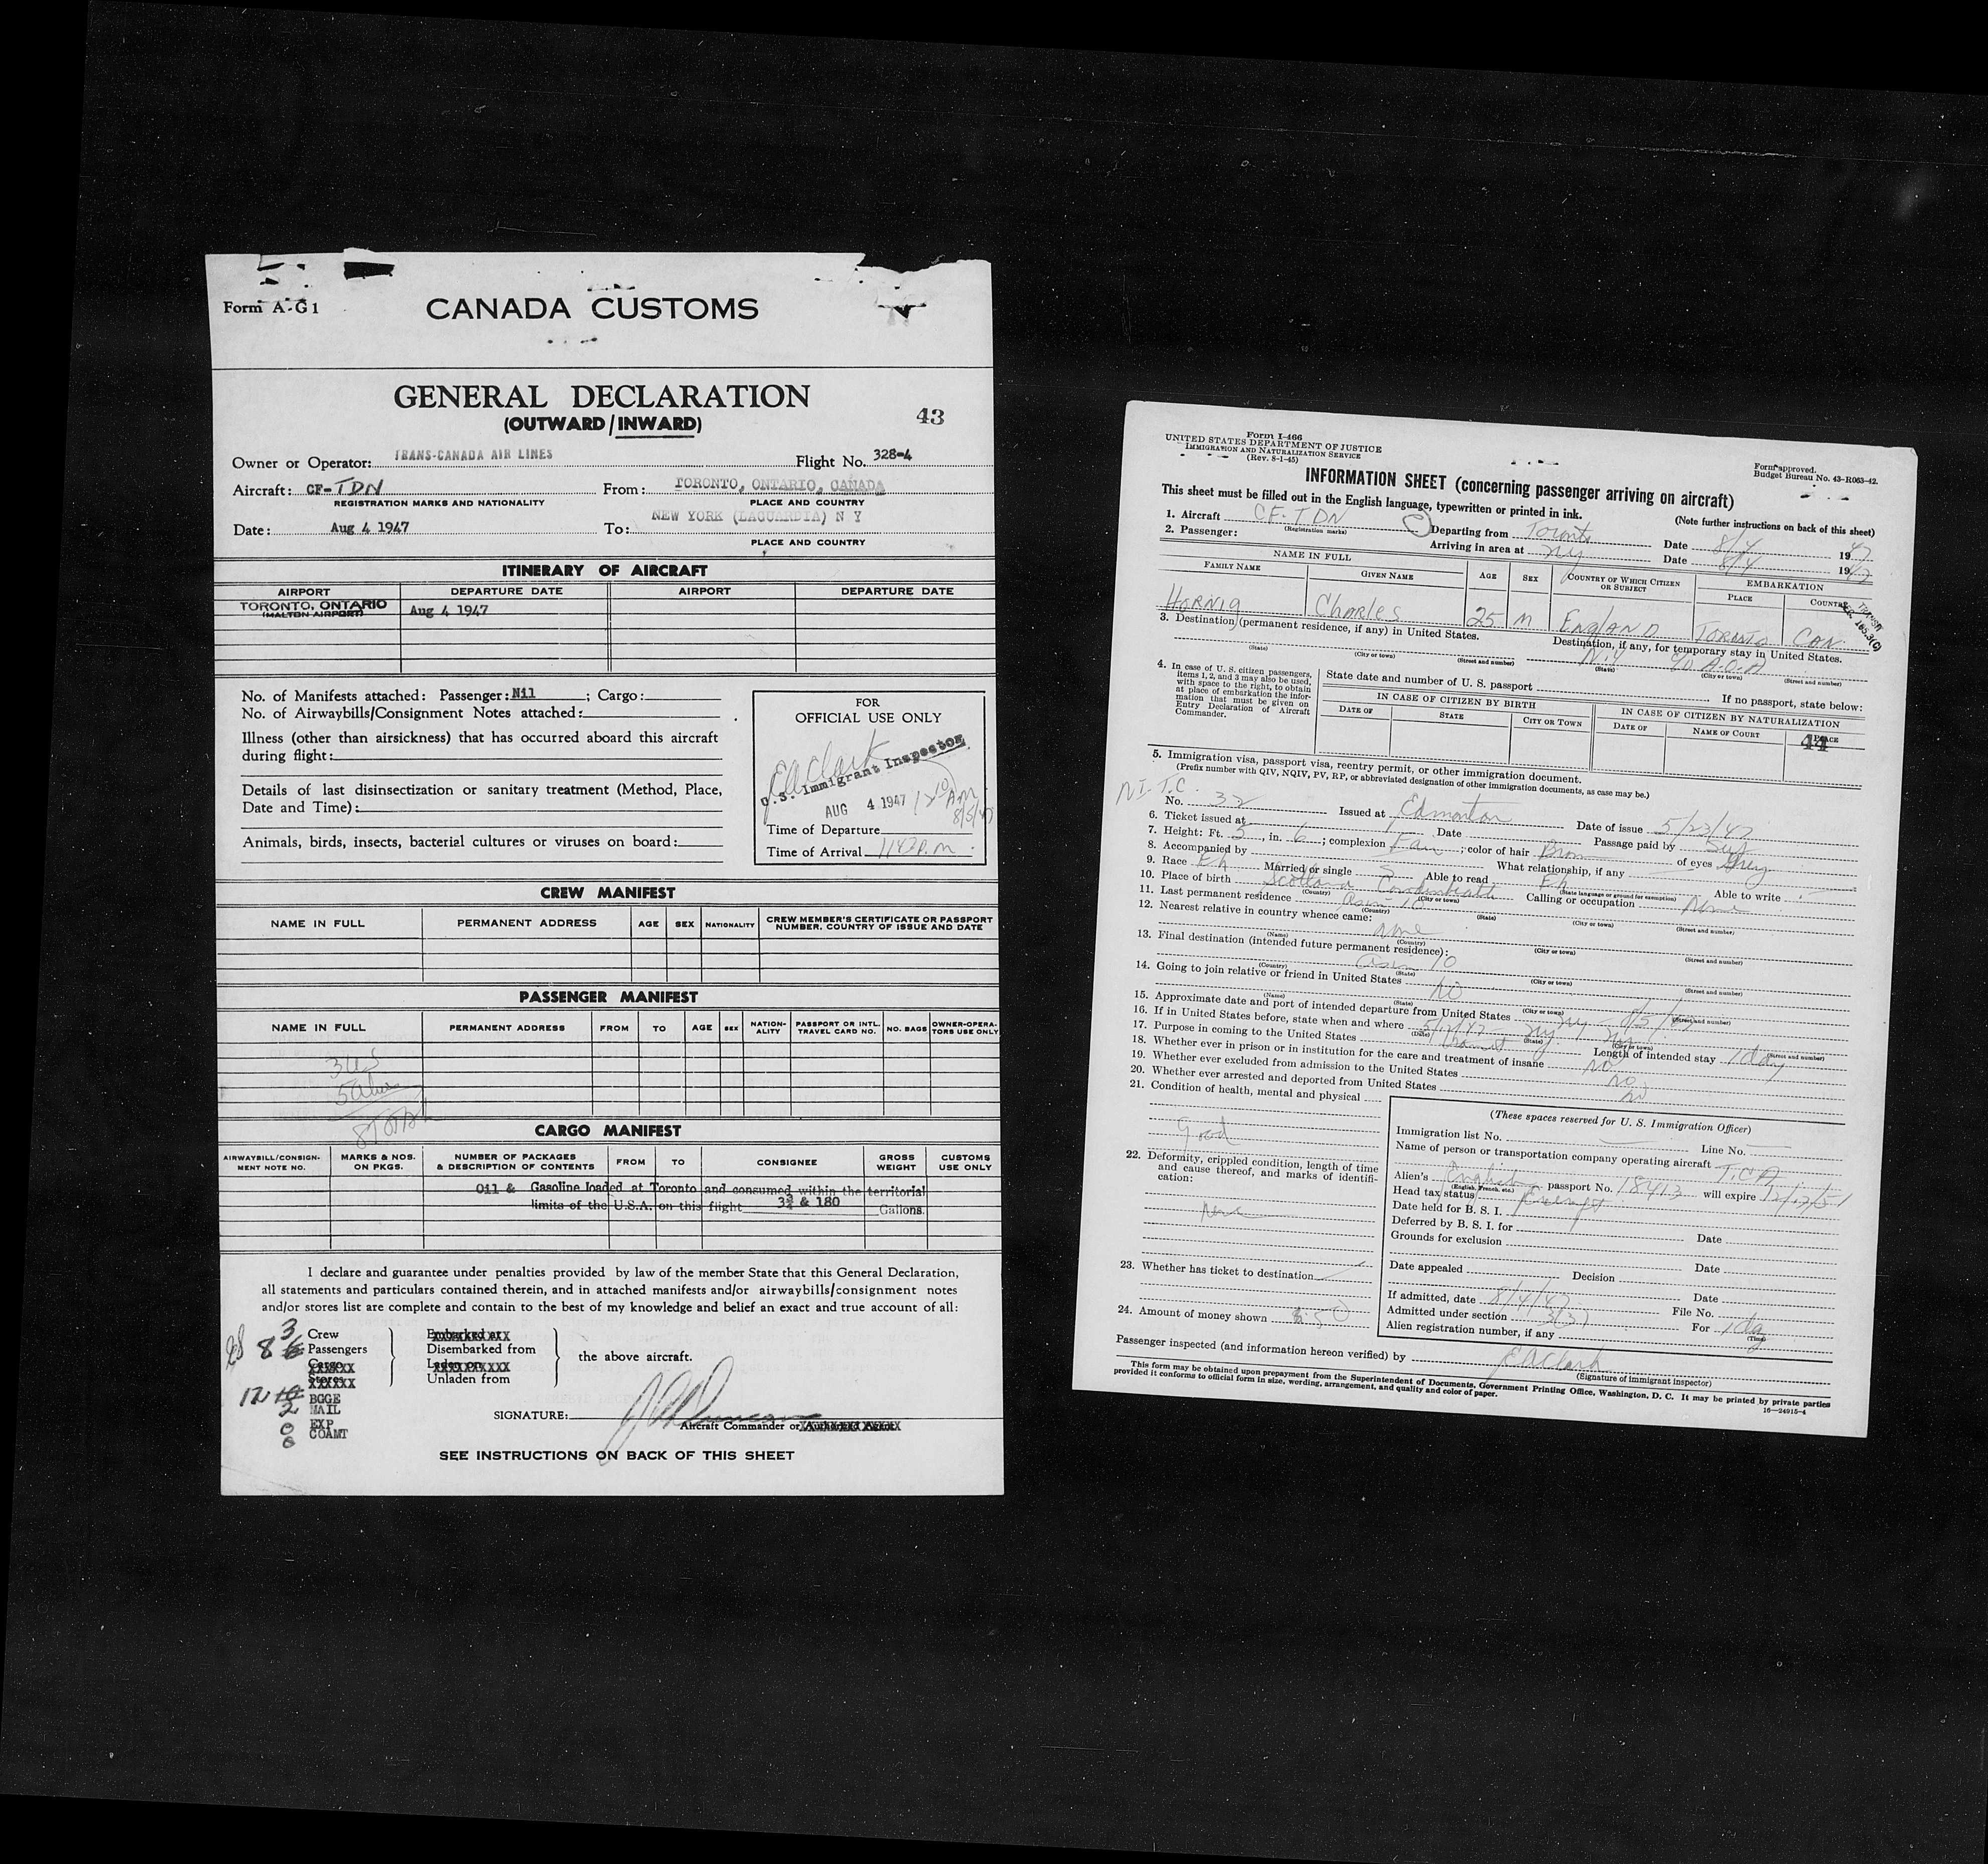 Form A-G1
CANADA CUSTOMS
GENERAL DECLARATION
(OUTWARD/INWARD)
43
Owner or Operator: TRANS-CANADA AIR LINES Flight No. 328-4
Aircraft: CF-TDN From: TORONTO, ONTARIO, CANADA
REGISTRATION MARKS AND NATIONALITY PLACE AND COUNTRY
Date: Aug 4 1947 To: NEW YORK (LAGUARDIA) N Y
PLACE AND COUNTRY
ITINERARY OF AIRCRAFT
AIRPORT DEPARTURE DATE AIRPORT DEPARTURE DATE
TORONTO, ONTARIO
(MALTON AIRPORT) Aug 4 1947
No. of Manifests attached: Passenger: Nil; Cargo:
No. of Airwaybills/Consignment Notes attached:
Illness (other than airsickness) that has occurred aboard this aircraft
during flight:
Details of last disinsectization or sanitary treatment (Method, Place,
Date and Time):
Animals, birds, insects, bacterial cultures or viruses on board:
FOR
OFFICIAL USE ONLY
EAClark
U.S. Immigrant Inspector
AUG 4 1947 12 10 AM
8/5/47
Time of Departure
Time of Arrival 1142 P.M.
CREW MANIFEST
NAME IN FULL PERMANENT ADDRESS AGE SEX NATIONALITY CREW MEMBER'S CERTIFICATE OR PASSPORT NUMBER, COUNTRY OF ISSUE AND DATE
PASSENGER MANIFEST
NAME IN FULL PERMANENT ADDRESS FROM TO AGE SEX NATION-ALITY PASSPORT OR INTL. TRAVEL CARD NO. NO. BAGS OWNER-OPERA-TORS USE ONLY
3 US
5 Alien
8 Total
CARGO MANIFEST
AIRWAYBILL/CONSIGN-MENT NOTE NO. MARKS & NOS. ON PKGS. NUMBER OF PACKAGES & DESCRIPTION OF CONTENTS FROM TO CONSIGNEE GROSS WEIGHT CUSTOMS USE ONLY
Oil & Gasoline loaded at Toronto and consumed within the territorial
limits of the U.S.A. on this flight 3¾ & 180 Gallons.
I declare and guarantee under penalties provided by law of the member State that this General Declaration,
all statements and particulars contained therein, and in attached manifests and/or airwaybills/consignment notes
and/or stores list are complete and contain to the best of my knowledge and belief an exact and true account of all:
3 Crew Embarked at
8 6 Passengers Disembarked from the above aircraft.
Cargo Laden on
Stores Unladen from
12 10 BGGE
2 MAIL
0 EXP
6 COAMT
SIGNATURE:
Aircraft Commander or Authorized Agent
SEE INSTRUCTIONS ON BACK OF THIS SHEET
Form I-466
UNITED STATES DEPARTMENT OF JUSTICE
IMMIGRATION AND NATURALIZATION SERVICE
(Rev. 8-1-45)
Form approved.
Budget Bureau No. 43-R063-42.
INFORMATION SHEET (concerning passenger arriving on aircraft)
This sheet must be filled out in the English language, typewritten or printed in ink.
(Note further instructions on back of this sheet)
1. Aircraft CF-TDN Departing from Toronto Date 8/4 1947
(Registration marks)
2. Passenger: Arriving in area at NY Date 8/4 1947
NAME IN FULL
FAMILY NAME GIVEN NAME AGE SEX COUNTRY OF WHICH CITIZEN OR SUBJECT EMBARKATION
PLACE COUNTRY
HORNIG Charles 25 M ENGLAND TORONTO CAN.
3. Destination (permanent residence, if any) in United States. Destination, if any, for temporary stay in United States.
N.Y. c/o A.O.A
(State) (City or town) (Street and number) (State) (City or town) (Street and number)
4. In case of U. S. citizen passengers, items 1, 2, and 3 may also be used, with space to the right, to obtain at place of embarkation the information that must be given on Entry Declaration of Aircraft Commander.
State date and number of U. S. passport If no passport, state below:
IN CASE OF CITIZEN BY BIRTH IN CASE OF CITIZEN BY NATURALIZATION
DATE OF STATE CITY OR TOWN DATE OF NAME OF COURT PLACE
44
5. Immigration visa, passport visa, reentry permit, or other immigration document.
(Prefix number with QIV, NQIV, PV, RP, or abbreviated designation of other immigration documents, as case may be.)
NI-T.C.
No. 32 Issued at Edmonton Date of issue 5/23/47
6. Ticket issued at Date Passage paid by Self
7. Height: Ft. 5, in. 6; complexion Fair; color of hair Brown of eyes Grey
8. Accompanied by What relationship, if any
9. Race Eh Married or single S Able to read Eh Able to write
(State language or ground for exemption)
10. Place of birth Scotland Calling or occupation None
(Country) (City or town)
11. Last permanent residence
(Country) (State) (City or town) (Street and number)
12. Nearest relative in country whence came: None
(Name) (Country) (City or town) (Street and number)
13. Final destination (intended future permanent residence):
(Country) (State) (City or town) (Street and number)
14. Going to join relative or friend in United States NO
(Name) (State) (City or town) (Street and number)
15. Approximate date and port of intended departure from United States NY 8/5/47
16. If in United States before, state when and where
(Date) (State) (City or town) (Street and number)
17. Purpose in coming to the United States Transit Length of intended stay 1 day
18. Whether ever in prison or in institution for the care and treatment of insane NO
19. Whether ever excluded from admission to the United States NO
20. Whether ever arrested and deported from United States NO
21. Condition of health, mental and physical
Good
22. Deformity, crippled condition, length of time and cause thereof, and marks of identification:
None
23. Whether has ticket to destination
24. Amount of money shown $50
(These spaces reserved for U. S. Immigration Officer)
Immigration list No. Line No.
Name of person or transportation company operating aircraft T.C.A.
Alien's English passport No. 18413 will expire 12/13/51
(English, French, etc.)
Head tax status Exempt
Date held for B. S. I.
Deferred by B. S. I. for Date
Grounds for exclusion
Date
Date appealed Decision Date
If admitted, date 8/4/47 File No.
Admitted under section 3(3) For 1 day
(Time)
Alien registration number, if any
Passenger inspected (and information hereon verified) by EAClark
(Signature of immigrant inspector)
This form may be obtained upon prepayment from the Superintendent of Documents, Government Printing Office, Washington, D. C. It may be printed by private parties
provided it conforms to official form in size, wording, arrangement, and quality and color of paper.
16—24915-4